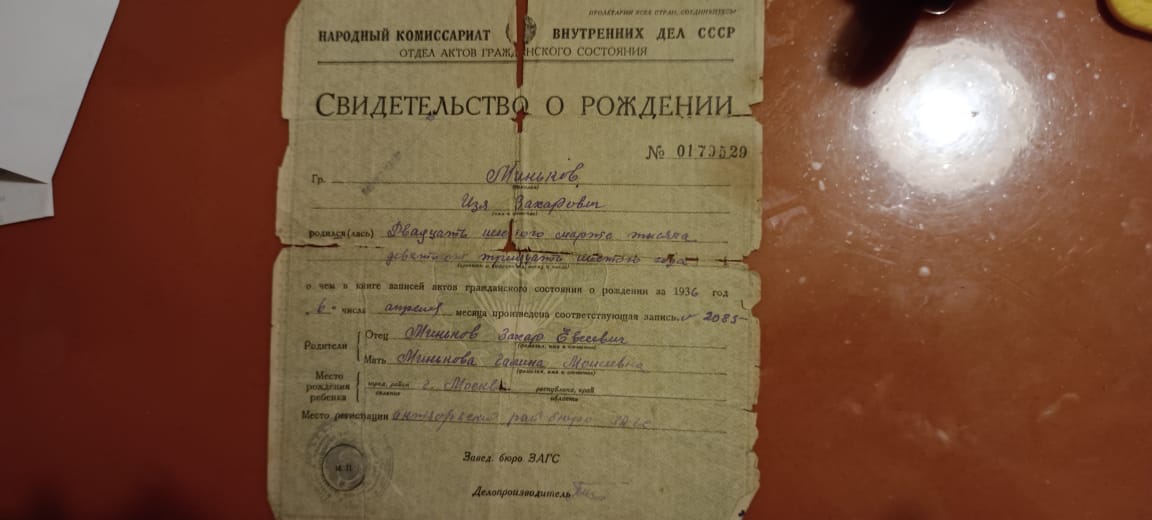 ПРОЛЕТАРИИ ВСЕХ СТРАН, СОЕДИНЯЙТЕСЬ!
НАРОДНЫЙ КОМИССАРИАТ ВНУТРЕННИХ ДЕЛ СССР
ОТДЕЛ АКТОВ ГРАЖДАНСКОГО СОСТОЯНИЯ
СВИДЕТЕЛЬСТВО О РОЖДЕНИИ
№ 0179529
Гр. Миньков
(фамилия)
Изя Захарович
(имя и отчество)
родился(лась) Двадцать марта тысяча
девятьсот тридцать шестого года
о чем в книге записей актов гражданского состояния о рождении за 1936 год
„6" числа апреля месяца произведена соответствующая запись № 2085
Родители
Отец Миньков Захар Евсеевич
(фамилия, имя и отчество)
Мать Минькова Галина Моисеевна
(фамилия, имя и отчество)
Место рождения ребенка
город, район г. Москва республика, край
селение область
Место регистрации рай бюро загс
М. П.
Завед. бюро ЗАГС
Делопроизводитель